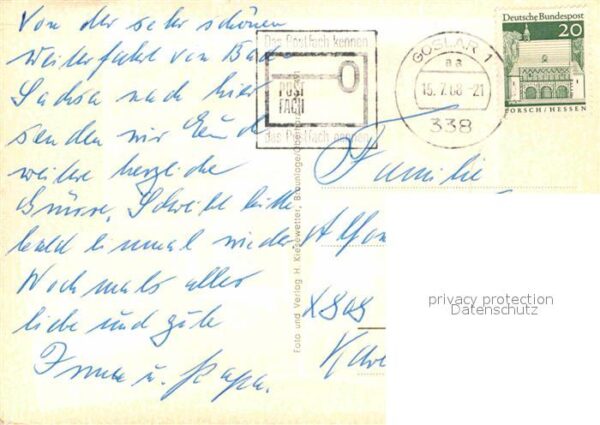 Von der sehr schönen
Weiterfahrt von Bad
Sachsa nach hier
senden wir Euch
weitere herzliche
Grüsse. Schreibt bitte
bald einmal wieder
Nochmals alles
liebe und gute
u. Papa.
Das Postfach kennen
POST
FACH
das Postfach nennen
GOSLAR 1
aa
15.7.68-21
338
Deutsche Bundespost
20
LORSCH/HESSEN
Foto und Verlag H. Kiesewetter, Braunlage/Oberharz
Familie
privacy protection
Datenschutz